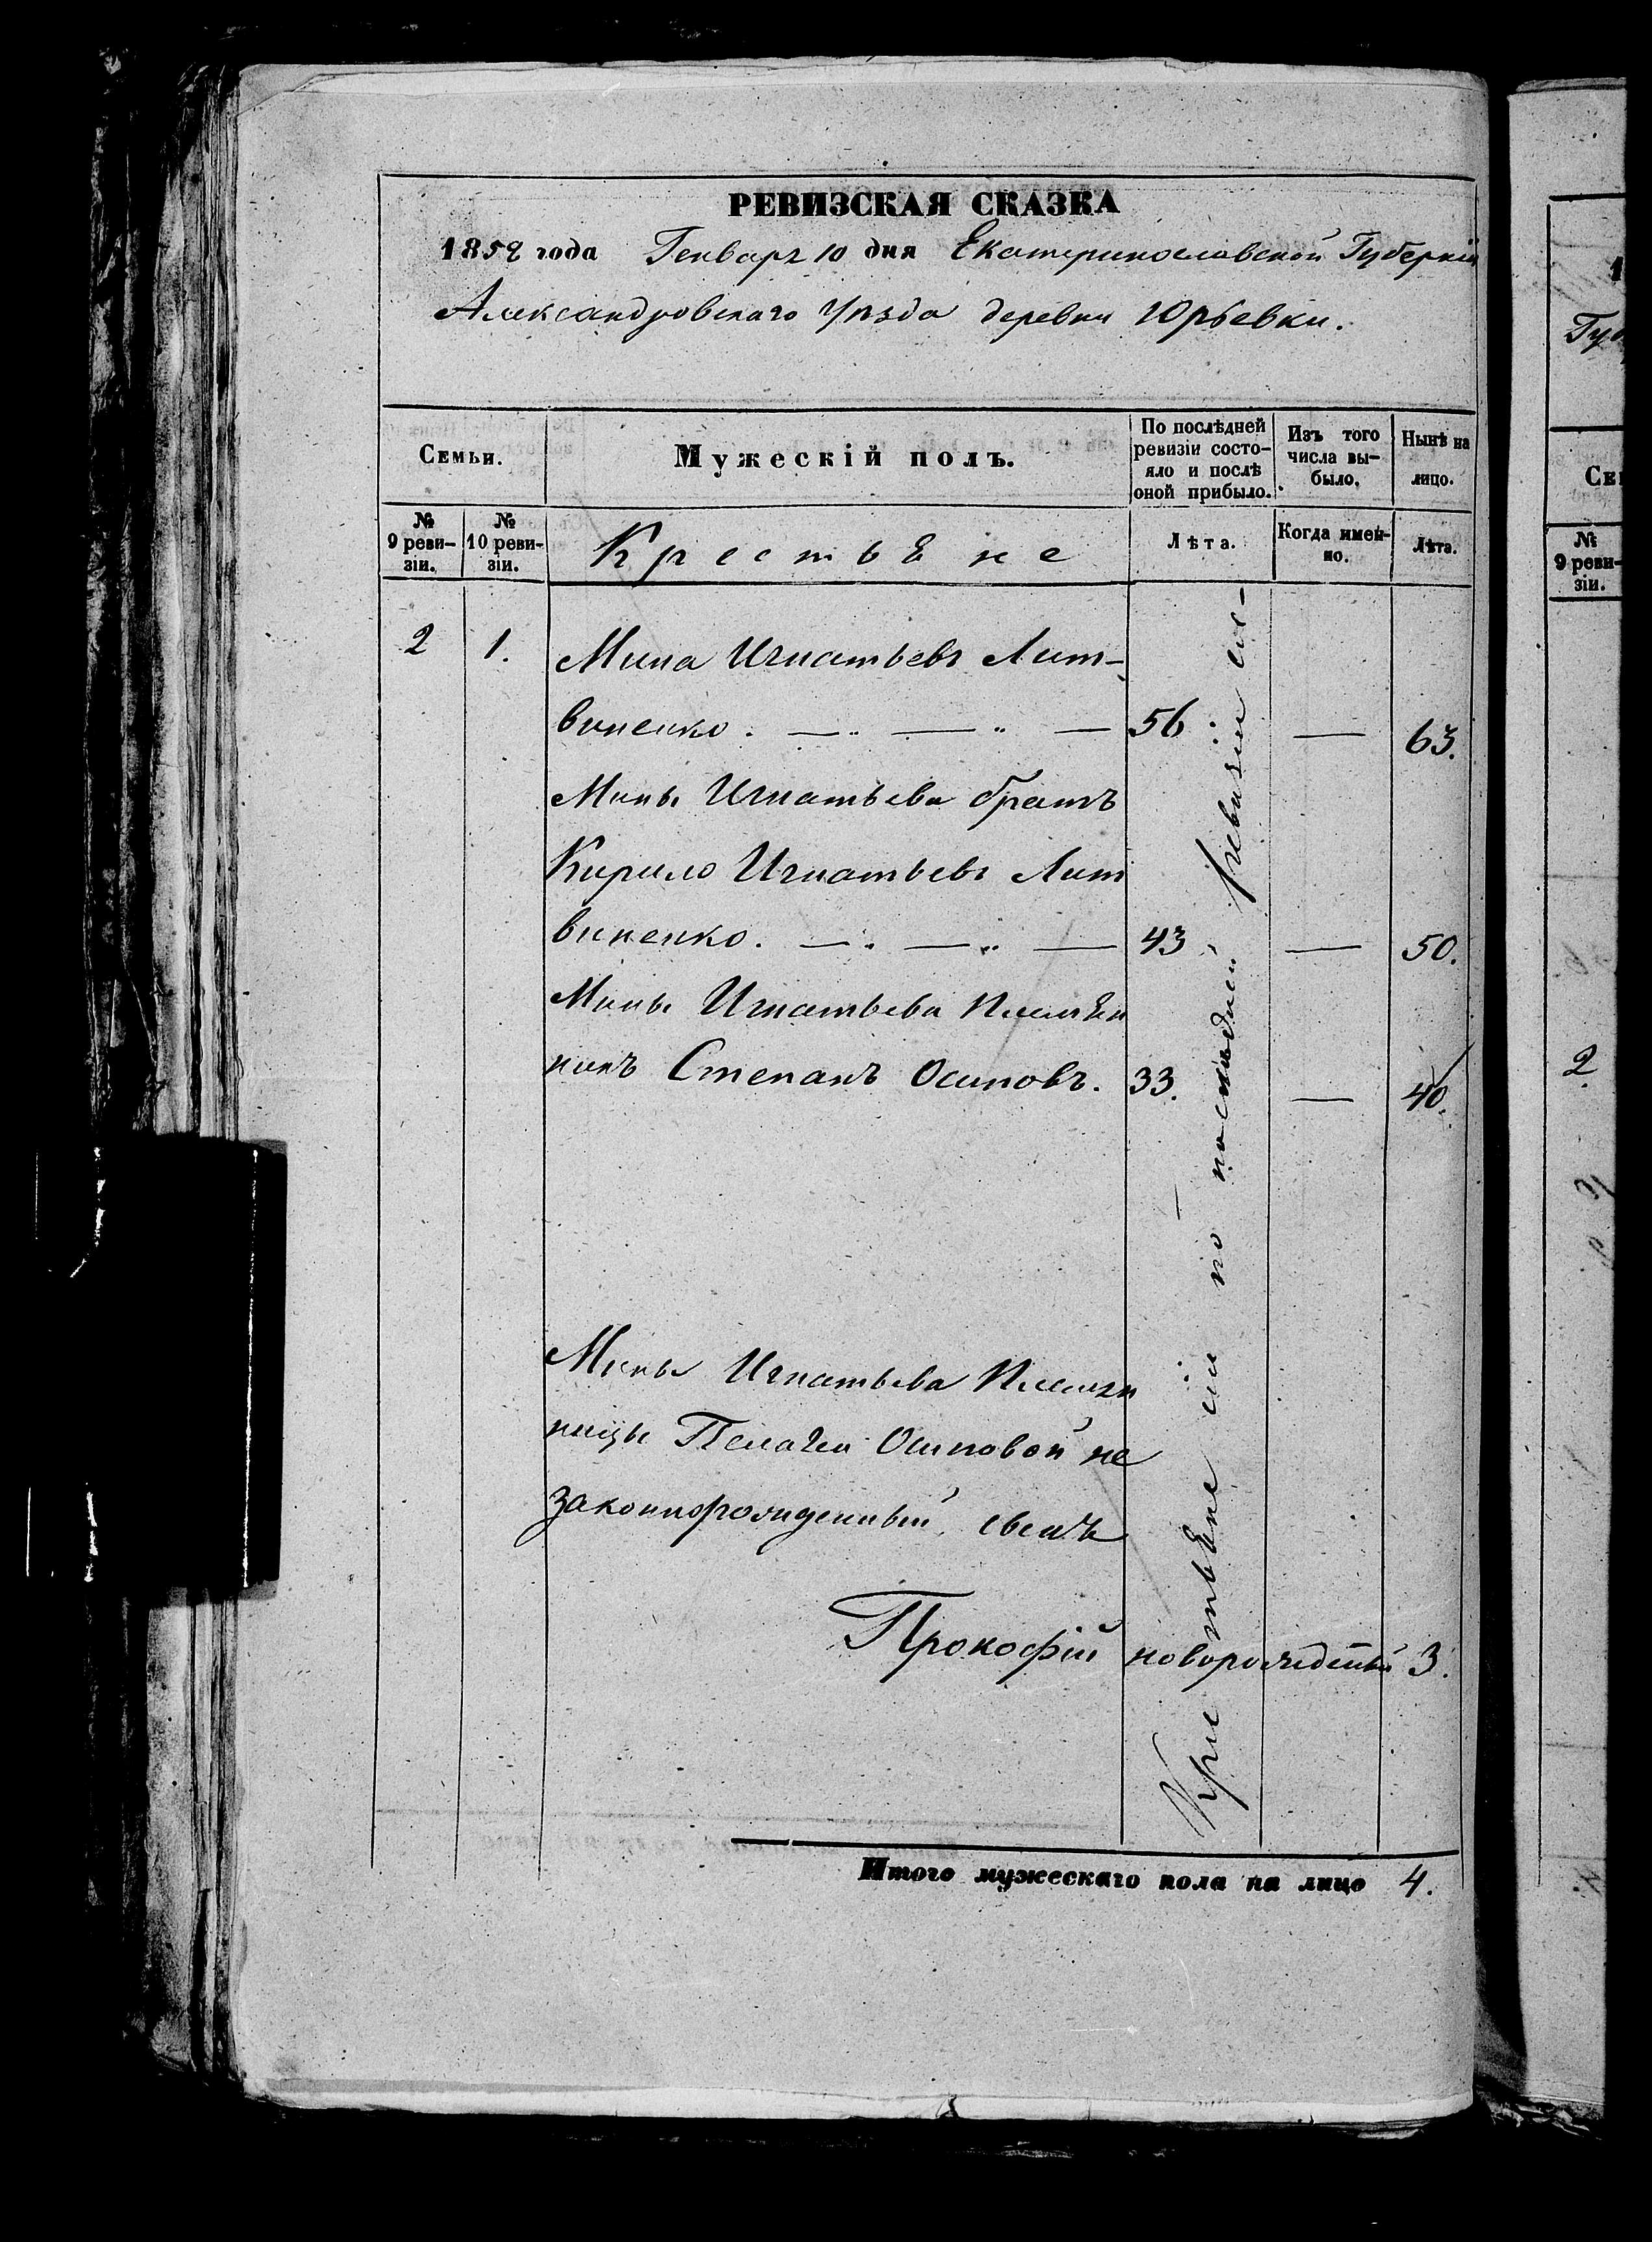 РЕВИЗСКАЯ СКАЗКА
1858 года Генваря 10 дня Екатеринославской Губерніи
Александровскаго Уѣзда деревни Юрьевки.
Семьи.
Мужескій полъ.
По послѣдней ревизіи состояло и послѣ оной прибыло.
Изъ того числа выбыло.
Нынѣ на лицо.
№ 9 ревизіи.
№ 10 ревизіи.
Крестьяне
Лѣта.
Когда именно.
Лѣта.
2 1. Мина Игнатьевъ Лит-
виненко. — 56 — 63.
Мины Игнатьева братъ
Кирило Игнатьевъ Лит
виненко. — 43 — 50.
Мины Игнатьева Племян
никъ Степанъ Осиповъ. 33. — 40.
Мины Игнатьева Племян
ницы Пелагеи Осиповой не
законнорожденный сынъ
Прокофій новорожденный 3.
Крестьяне сіи по последней ревизіи сос-
Итого мужескаго пола на лицо 4.
Губ
Се
№ 9 ревизіи.
2